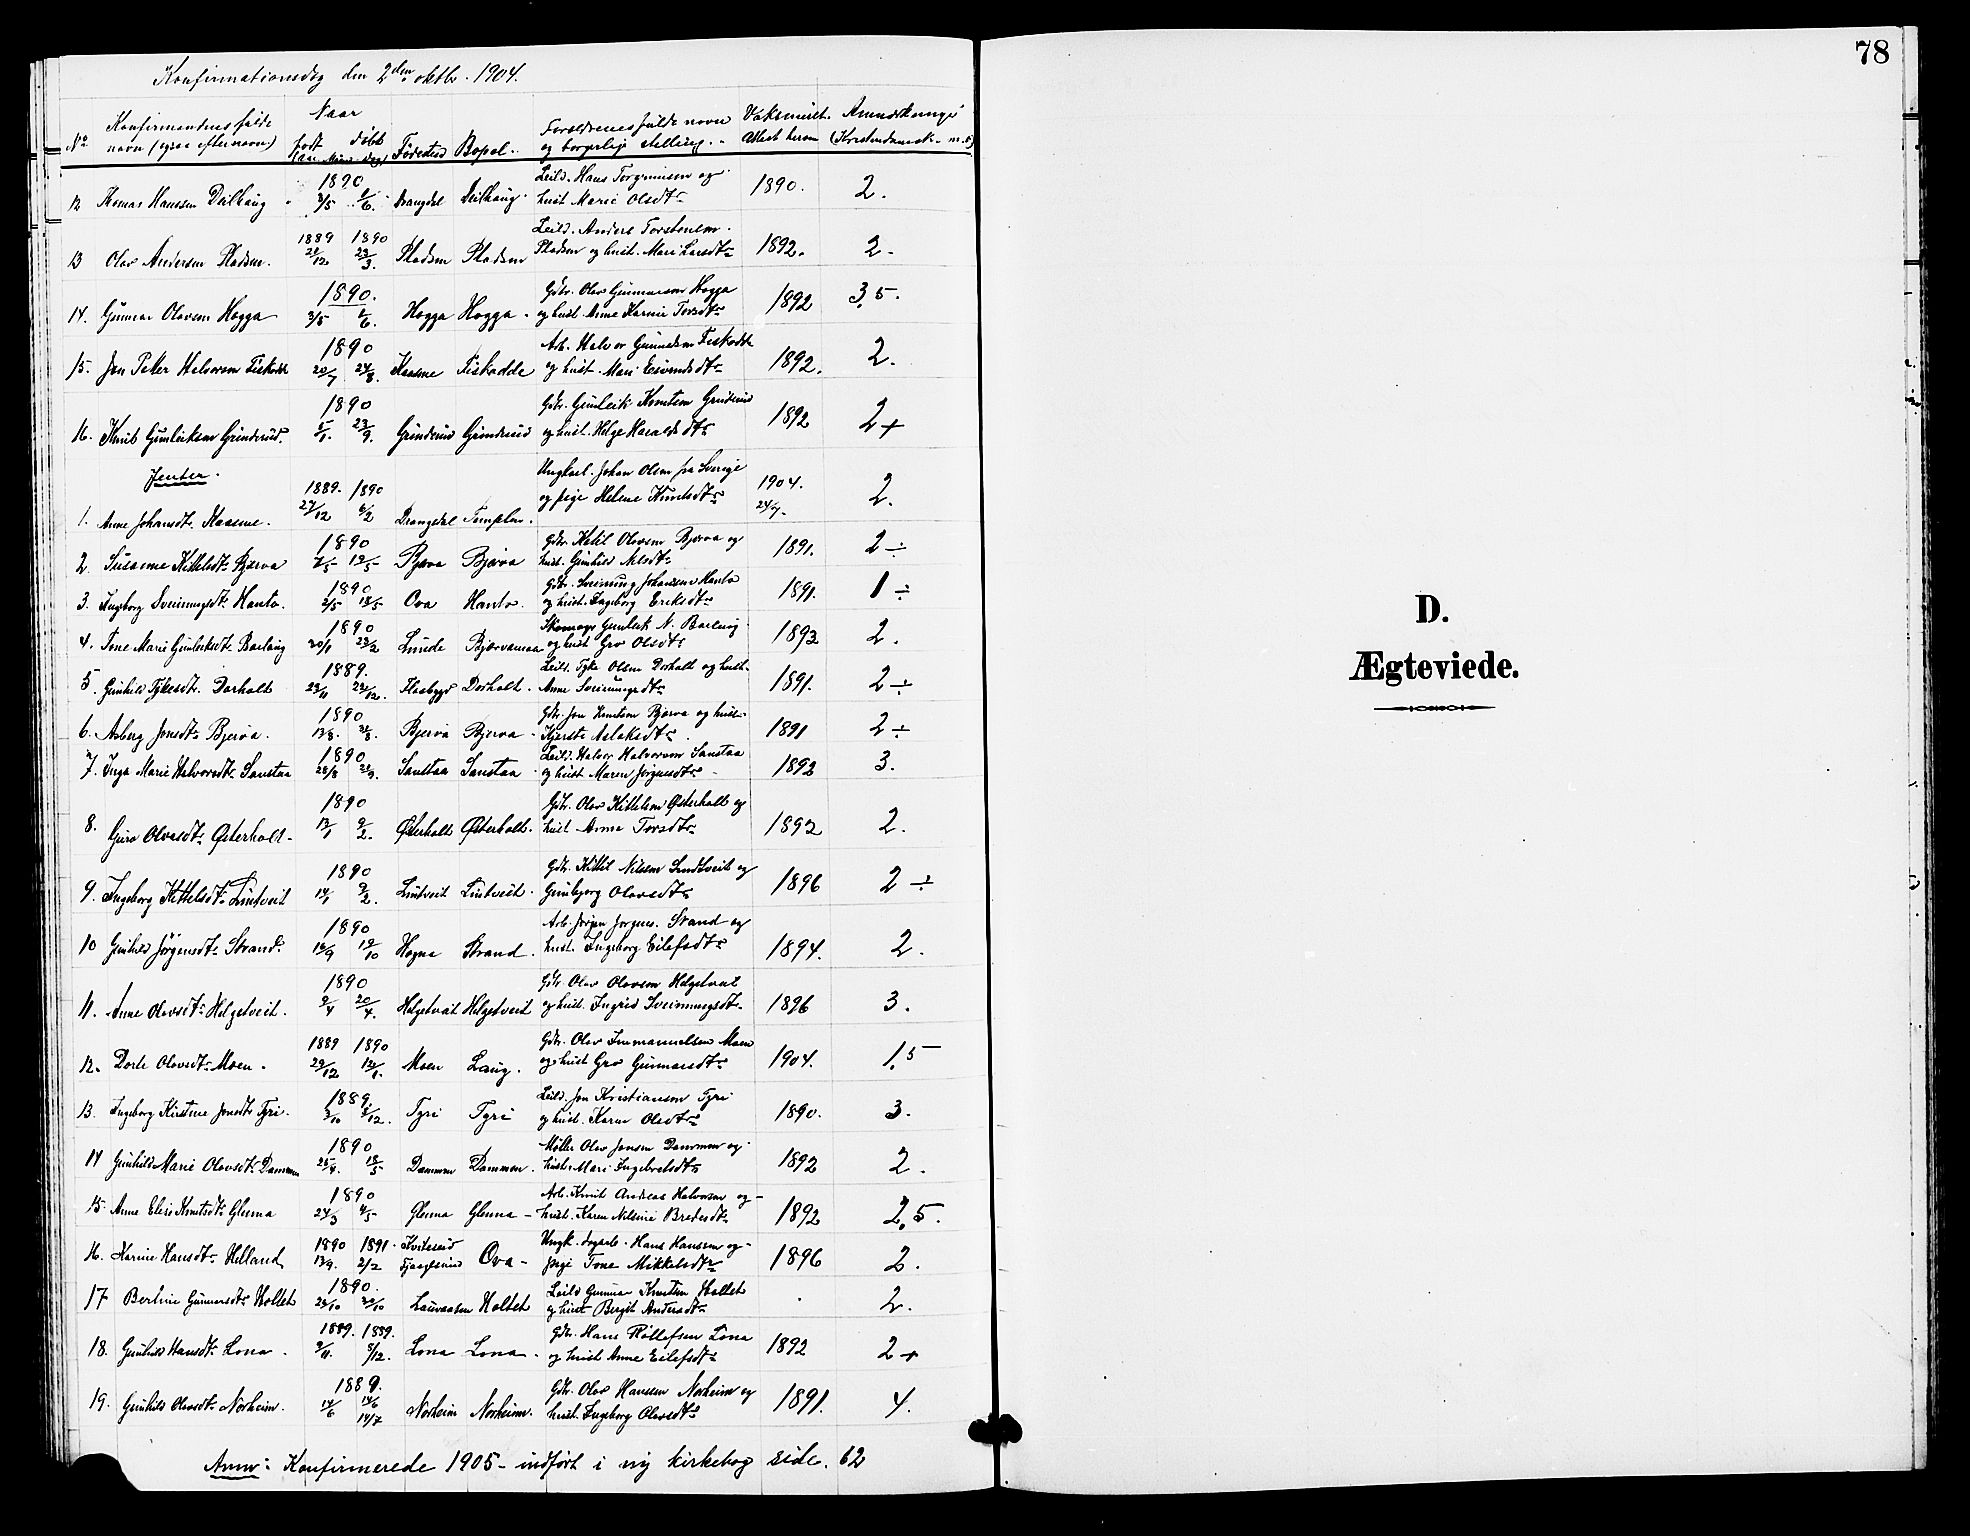 Konfirmationsdag den 2den oktbr. 1904.
No Konfirmandens fulde navn (ogsaa efternavn) Naar født døbt Fødested Bopæl. Forældrenes fulde navn og borgerlige stilling. Vaksineret. Attest herom Anmærkninger (Kristendomsk.
12 Hanssen Deilhaug 1890 3/5 1/6. Drangedal Deilhaug. Leild. Hans Torgrimsen og hust. Marie Olsdtr 1890. 2.
13 Olav Andersen Pladsen. 1889 1890 28/12 23/3. Pladsen Pladsen Leild. Anders Torstensen Pladsen og hust. Mari Larsdtr 1892. 2.
14. Gunnar Olavsen Hogga 1890. 3/5 1/6. Hogga Hogga. Gdbr. Olav Gunnarsen Hogga og hust. Anne Karine Torsdtr 1892 3,5.
15. Jon Peter Halvorsen Fiskodde 1890 20/7 24/8. Kaasene Fiskodde Arb. Halvor Gunnulsen Fiskodde og hust. Mari Eivindsdtr 1892. 2.
16. Knut Gunleiksen Grindrud. 1890 5/1. 23/9. Grindrud Grindrud Gdbr. Gunleik Knutsen Grindrud og hust. Helge Haraldsdtr 1892 2+
Jenter.
1. Anne Johansdtr. Kaasene. 1889. 1890 27/12 6/2 Drangedal Ungkarl. Johan Olsen fra Sverige og pige Helene Knutsdtr 1904. 24/7. 2.
2. Susanne Kittelsdtr Bjerva 1890 2/5 19/5 Bjerva Bjerva Gdbr. Kittil Olavsen Bjerva og hust. Gunhild Nilsdtr 1891. 2 ÷
3. Ingeborg Sveinungsdtr Hanto. 1890 2/5 18/5 Ova Hanto. Gdbr. Sveinung Johansen Hanto og hust. Ingeborg Eriksdtr 1891. 1 ÷
4. Tone Marie Gunleiksdtr Barlaug 1890 20/1 23/2 Lunde Bjervamoen Skomager Gunleik N. Barlaug og hust. Gro Olsdtr 1893 2.
5. Gunhild Tykesdtr. Dorholt 1889. 23/11 22/12. Flaabygd Dorholt. Leild. Tyke Olsen Dorholt og hust. Anne Sveinungsdtr 1891. 2 ÷
6. Asberg Jonsdtr Bjerva. 1890 13/8. 31/8. Bjerva Bjerva Gdbr. Jon Knutsen Bjerva og hust. Kjersti Aslaksdtr 1891 2 ÷
7. Inga Marie Halvorsdtr Sanstaa 1890 28/8 21/9. Sanstaa Sanstaa Leild. Halvor Halvorsen Sanstaa og hust Maren Jørgensdtr 1892 3.
8. Guro Olavsdtr Østerholt 1890 13/1 9/2. Østerholt Østerholt. Gdbr. Olav Kittelsen Østerholt og hust. Anne Torsdtr 1892 2.
9. Ingeborg Kittelsdtr Lindtveit 1890 14/1 9/2. Lintveit Lintveit. Gdbr. Kittil Nilssen Lindtveit og Gunbjørg Olavsdtr 1896 2 ÷
10 Gunhild Jørgensdtr Strand. 1890 16/9 19/10 Hogna Strand. Arb. Jørgen Jørgens. Strand og hust. Ingeborg Eilefsdtr 1894. 2.
11. Anne Olavsdtr Helgetveit. 1890 9/4 20/4. Helgetveit Helgetveit Gdbr. Olav Olavsen Helgetveit og hust. Ingrid Sveinungsdtr. 1896 3.
12. Dorte Olavsdtr Moen. 1889 1890 29/12 12/1. Moen Laug. Gdbr. Olav Immanuelsen Moen og hust Gro Gunnarsdtr 1904. 1,5
13. Ingeborg Kirstine Jonsdtr Tyri. 1889. 3/10 8/12. Tyri Tyri Leild. Jon Kristiansen Tyri og hust. Karen Olsdtr 1890. 3.
14 Gunhild Marie Olavsdtr Dammen 1890 25/4. 18/5 Dammen Dammen. Møller Olav Jonsen Dammen og hust. Mari Ingebretsdtr 1892 2.
15. Anne Elise Knutsdtr Glenna 1890 24/3 4/5 Glenna Glenna Arb. Knut Andreas Halvorsen og hust. Karen Nilsine Bredesdtr 1892 2,5.
16. Karine Hansdtr Helland 1890 1891. 13/9. 2/2 Kviteseid Ova Ungk. dagarb. Hans Hanssen og pige Tone Mikkelsdtr 1896 2.
17. Bertine Gunnarsdtr Holtet 1890. Holtet Leild Gunnar Knutsen Holtet og hust Bergit Andersdtr 2.
18. Gunhild Hansdtr Lona. 1889. 1889. 9/11. 8/12. Lona Lona. Gdbr. Hans Rollefsen Lona og hust Anne Eilefsdtr 1892 2+
19. Gunhild Olavsdtr Norheim. 1889. 14/6 14/6 14/7 Norheim Norheim. Gdbr. Olav Hanssen Norheim og hust. Ingeborg Olavsdtr 1891. 4.
Anm: Konfirmerede 1905 - indført i ny kirkebog side. 62
78
D.
Ægteviede.